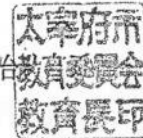 太宰府市
教育委員会
教育長印